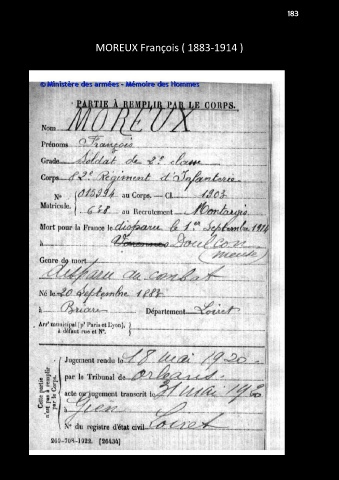 183
MOREUX François ( 1883-1914 )
© Ministère des armées - Mémoire des Hommes
PARTIE À REMPLIR PAR LE CORPS.
Nom MOREUX
Prénoms François
Grade Soldat de 2e classe
Corps 82e Régiment d'Infanterie
N° Matricule. { 015994 au Corps. — Cl. 1903
628 au Recrutement Montargis
Mort pour la France le disparu le 1er septembre 1914
à Varennes Doulcon
(Meuse)
Genre de mort disparu au combat
Né le 20 septembre 1883
à Briare Département Loiret
Arrt municipal (pr Paris et Lyon),
à défaut rue et N°.
Cette partie n'est pas à remplir par le Corps.
Jugement rendu le 18 mai 1920
par le Tribunal de Orléans
acte ou jugement transcrit le 31 mai 1920
à Gien Loiret
N° du registre d'état civil
269-708-1922. [26434]